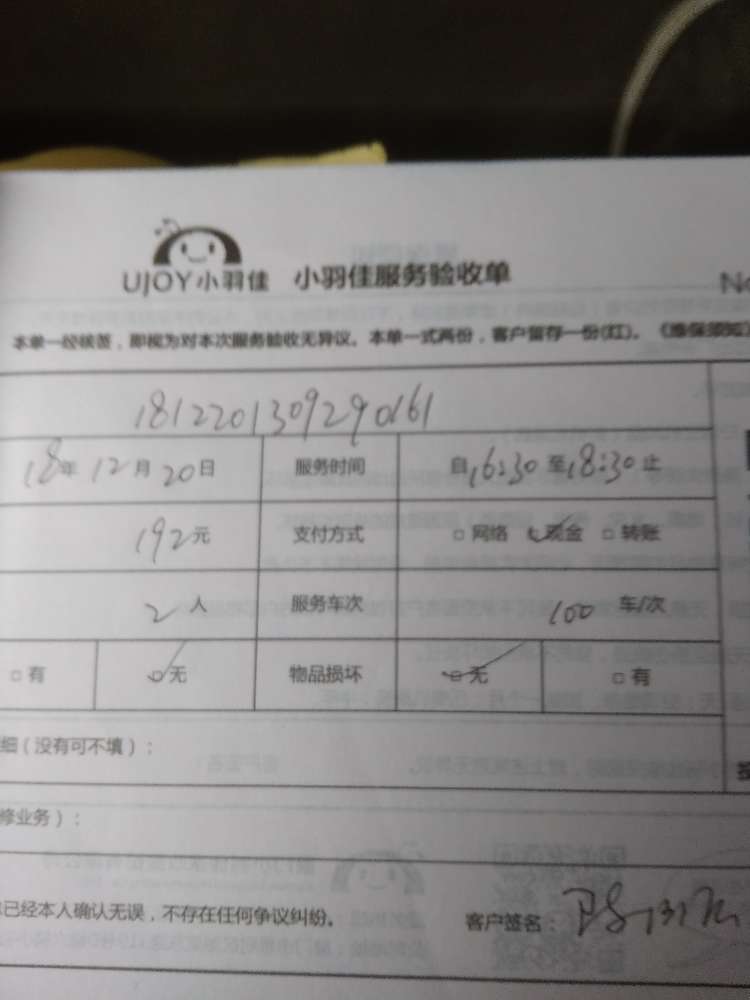 UJOY小羽佳 小羽佳服务验收单 No
本单一经核签，即视为对本次服务验收无异议。本单一式两份，客户留存一份(红)。《维保须知》
1812201309290161
18年12月20日 服务时间 自16:30至18:30止
192元 支付方式 □网络 ☑现金 □转账
2人 服务车次 100车/次
□有 ☑无 物品损坏 ☑无 □有
细（没有可不填）：
修业务）：
已经本人确认无误，不存在任何争议纠纷。 客户签名：